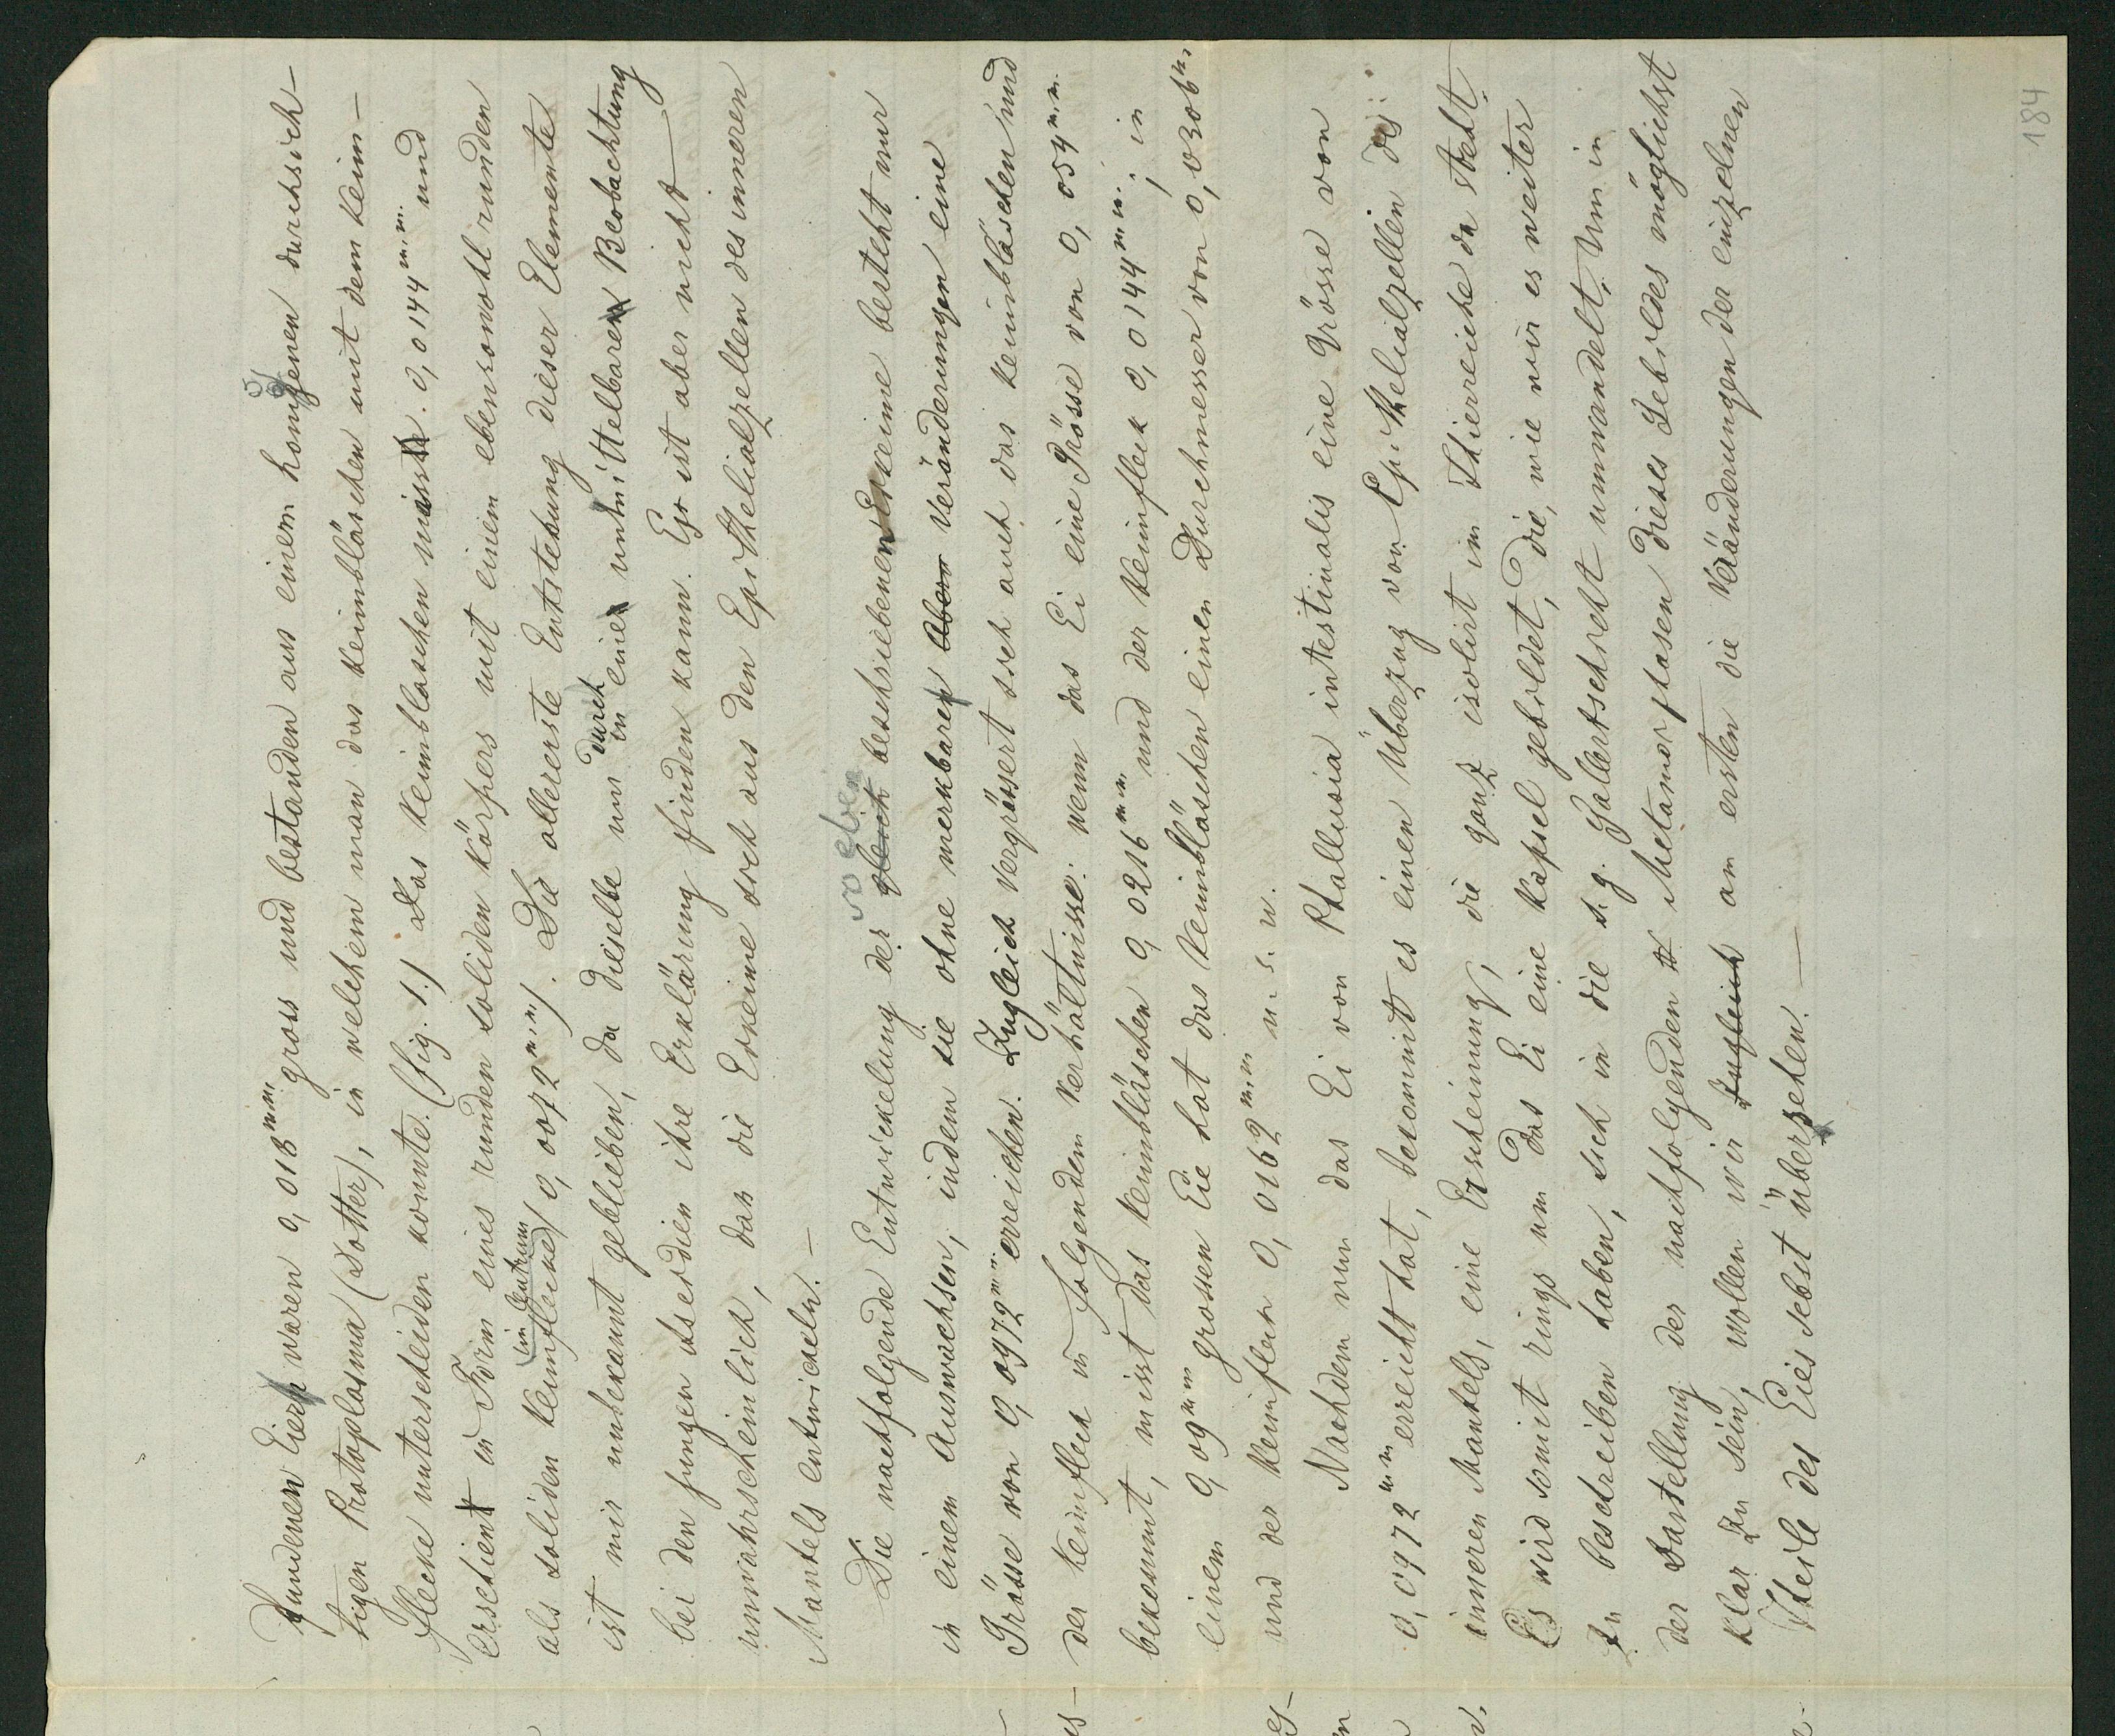 fundenen Eier waren 0,018 m.m. gross und bestanden aus einem homogenen durchsich-
tigen Protoplasma (Dotter), in welchem man das Keimbläschen mit dem Keim-
flecke unterscheiden konnte. (fig. 1.) Das Keimbläschen misst 0,0144 m.m. und
erschient in Form eines runden soliden Körpers mit einem ebensowohl runden
als soliden Keimflecke (im Zentrum) 0,0072 m.m). Die allererste Entstehung dieser Elemente
ist mir unbekannt geblieben, da dieselbe nur durch in eine unmittelbare Beobachtung
bei den jungen Ascidien ihre Erklärung finden kann. Es ist aber nicht
unwahrscheinlich, das die Eikeime sich aus den Epithelialzellen des inneren
Mantels entwickeln. —
Die nachfolgende Entwickelung der gleich so eben beschriebenen Eikeime besteht nur
in einem Auswachsen, indem sie ohne merkbare Aber Veränderungen eine
Grösse von 0,0972 m.m. erreichen. Zugleich vergrössert sich auch das Keimbläschen und
der Keimfleck in folgendem Verhältnisse: wenn das Ei eine Grösse von 0,054 m.m.
bekommt, misst das Keimbläschen 0,0216 m.m und der Keimfleck 0,0144 m.m.; in
einem 0,09 m.m grossen Eie hat das Keimbläschen einen Durchmesser von 0,0306 m.
und der Keimfleck 0,0162 m.m u. s. w.
Nachdem nun das Ei von Phallusia intestinalis eine Grösse von
0,0972 m.m erreicht hat, bekommt es einen Überzug von Epithelialzellen des
inneren Mantels, eine Erscheinung, die ganz isolirt im Thierreiche da steht.
Es wird somit rings um das Ei eine Kapsel gebildet, die, wie wir es weiter
zu beschreiben haben, sich in die s. g. Gallertschicht umwandelt. Um in
der Darstellung der nachfolgenden Metamorphosen dieses Gebildes möglichst
klar zu sein, wollen wir zugleich am ersten die Veränderungen der einzelnen
Theile des Eies selbst übersehen. —
184